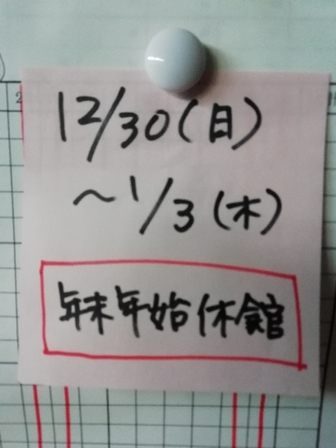 12/30(日)
〜1/3(木)
年末年始休館